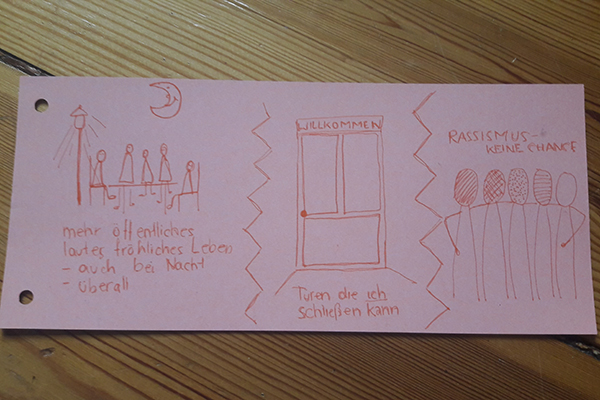 mehr öffentliches
lautes fröhliches Leben
- auch bei Nacht
- überall
WILLKOMMEN
Türen die ich
schließen kann
RASSISMUS -
KEINE CHANCE